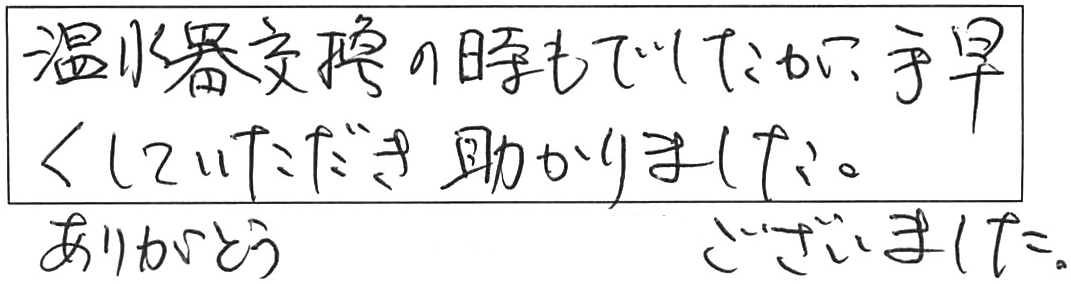 温水器交換の時もでしたが、手早
くしていただき助かりました。
ありがとう ございました。